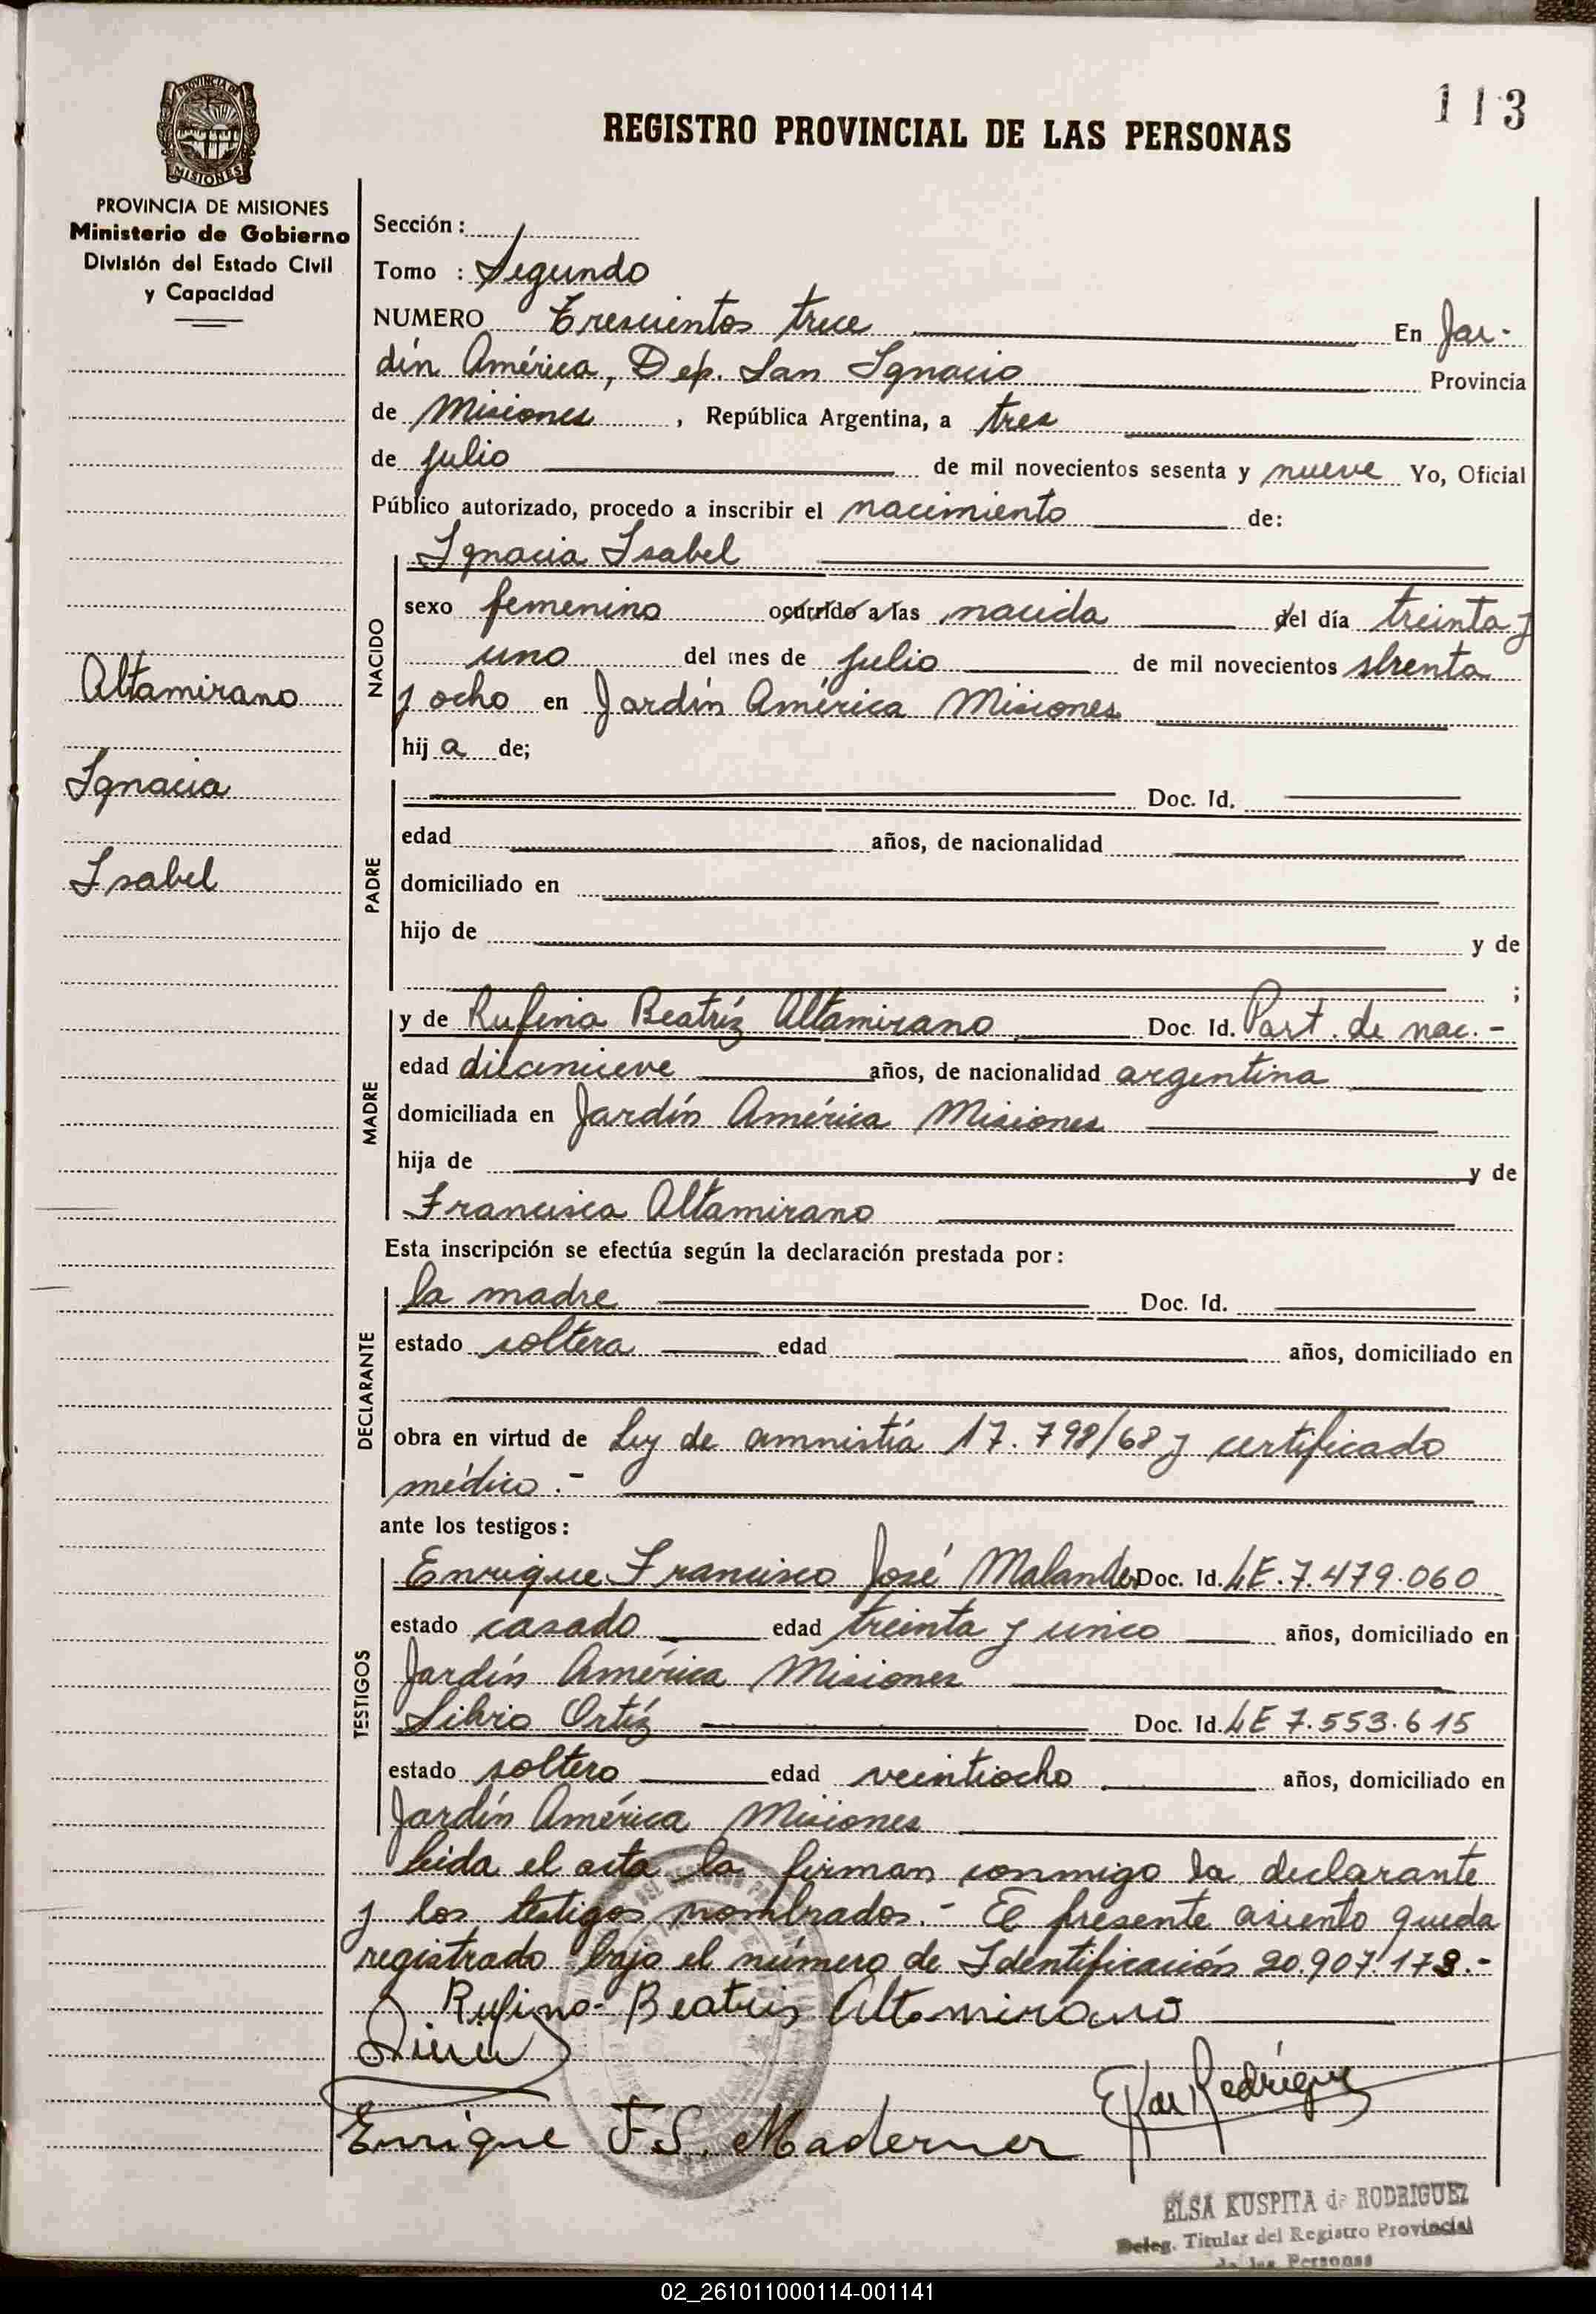 113
REGISTRO PROVINCIAL DE LAS PERSONAS
PROVINCIA DE
MISIONES
PROVINCIA DE MISIONES
Ministerio de Gobierno
División del Estado Civil
y Capacidad
Altamirano
Ignacia
Isabel
Sección:
Tomo : Segundo
NUMERO Trescientos trece En Jar-
dín América, Dep. San Ignacio Provincia
de Misiones, República Argentina, a tres
de julio de mil novecientos sesenta y nueve Yo, Oficial
Público autorizado, procedo a inscribir el nacimiento de:
NACIDO
Ignacia Isabel
sexo femenino ocurrido a las nacida del día treinta y
uno del mes de julio de mil novecientos
y ocho en Jardín América Misiones
hija de;
PADRE
Doc. Id.
edad años, de nacionalidad
domiciliado en
hijo de y de
;
MADRE
y de Rufina Beatríz Altamirano Doc. Id. Part. de nac.-
edad diecinueve años, de nacionalidad argentina
domiciliada en Jardín América Misiones
hija de y de
Francisca Altamirano
Esta inscripción se efectúa según la declaración prestada por:
DECLARANTE
la madre Doc. Id.
estado soltera edad años, domiciliado en
obra en virtud de Ley de amnistía 17.798/68 y certificado
médico.-
ante los testigos:
TESTIGOS
Enrique Francisco José Doc. Id. LE.7.479.060
estado casado edad treinta y años, domiciliado en
Jardín América Misiones
Silvio Ortíz Doc. Id. LE 7.553.615
estado soltero edad veintiocho años, domiciliado en
Jardín América Misiones
leida el acta la firman conmigo la declarante
y los testigos nombrados.- El presente asiento queda
registrado bajo el número de Identificación 20.907.173.-
Rufina Beatris Altamirano
Enrique F.S. Maderner
ELSA KUSPITA de RODRIGUEZ
Deleg. Titular del Registro Provincial
de las Personas
02_261011000114-001141